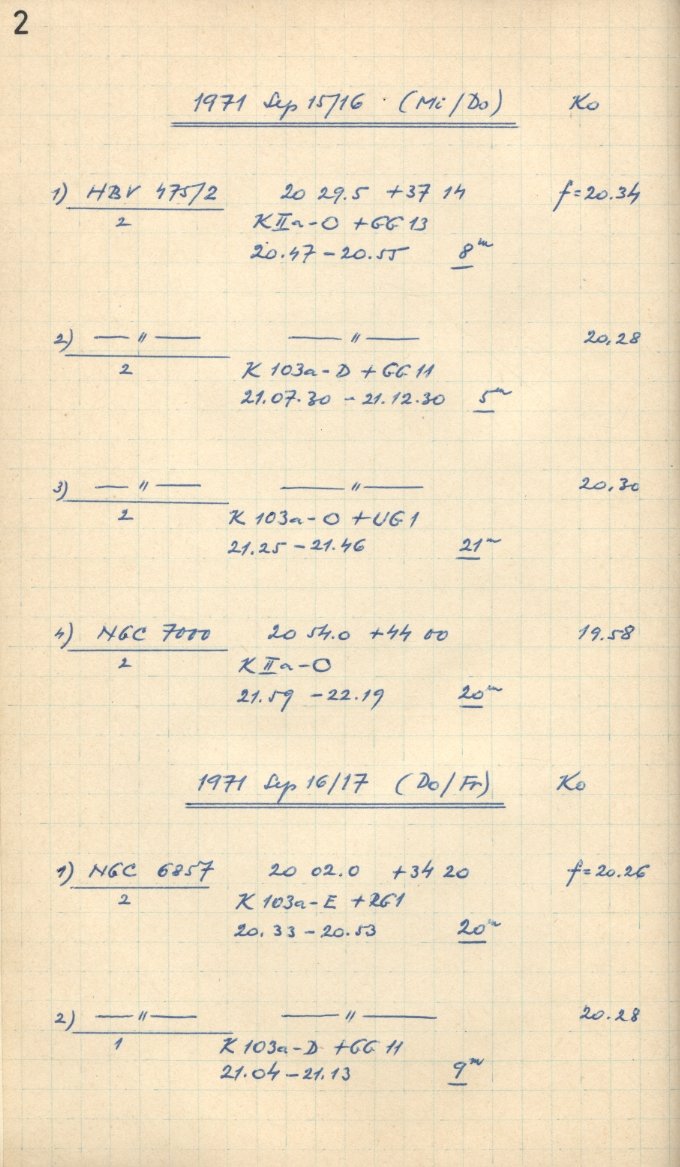 2
1971 Sep 15/16 (Mi/Do) Ko
1) HBV 475/2 20 29.5 +37 14 f=20.34
2 K IIa-O + GG 13
20.47 – 20.55 8m
2) — " — — " — 20.28
2 K 103a-D + GG 11
21.07.30 – 21.12.30 5m
3) — " — — " — 20.30
2 K 103a-O + UG 1
21.25 – 21.46 21m
4) NGC 7000 20 54.0 +44 00 19.58
2 K IIa-O
21.59 – 22.19 20m
1971 Sep 16/17 (Do/Fr) Ko
1) NGC 6857 20 02.0 +34 20 f=20.26
2 K 103a-E + RG1
20.33 – 20.53 20m
2) — " — — " — 20.28
1 K 103a-D + GG 11
21.04 – 21.13 9m